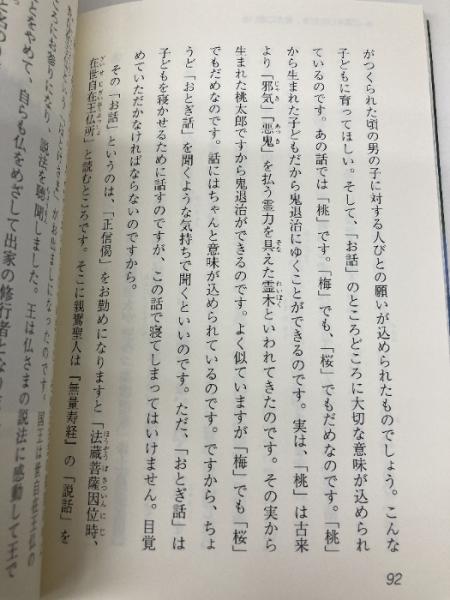 がつくられた頃の男の子に対する人びとの願いが込められたものでしょう。こんな
子どもに育ってほしい。そして、「お話」のところどころに大切な意味が込められ
ているのです。あの話では「桃」です。「梅」でも、「桜」でもだめなのです。「桃」
から生まれた子どもだから鬼退治にゆくことができるのです。実は、「桃」は古来
より「邪気」「悪鬼」を払う霊力を具えた霊木といわれてきたのです。その実から
生まれた桃太郎ですから鬼退治ができるのです。よく似ていますが「梅」でも「桜」
でもだめなのです。話にはちゃんと意味が込められているのです。ですから、ちょ
うど「おとぎ話」を聞くような気持ちで聞くといいのです。ただ、「おとぎ話」は
子どもを寝かせるために話すのですが、この話で寝てしまってはいけません。目覚
めていただかなければならないのですから。
その「お話」というのは、「正信偈」をお勤めになりますと「法蔵菩薩因位時、
在世自在王仏所」と読むところです。そこに親鸞聖人は『無量寿経』の「説話」を
92
がおいましになったのです。
ころにお参りになり、説法を聴聞しました。王は仏さまの説法に感動して王で
とをやめて、自らも仏をめざして出家の修行者となり